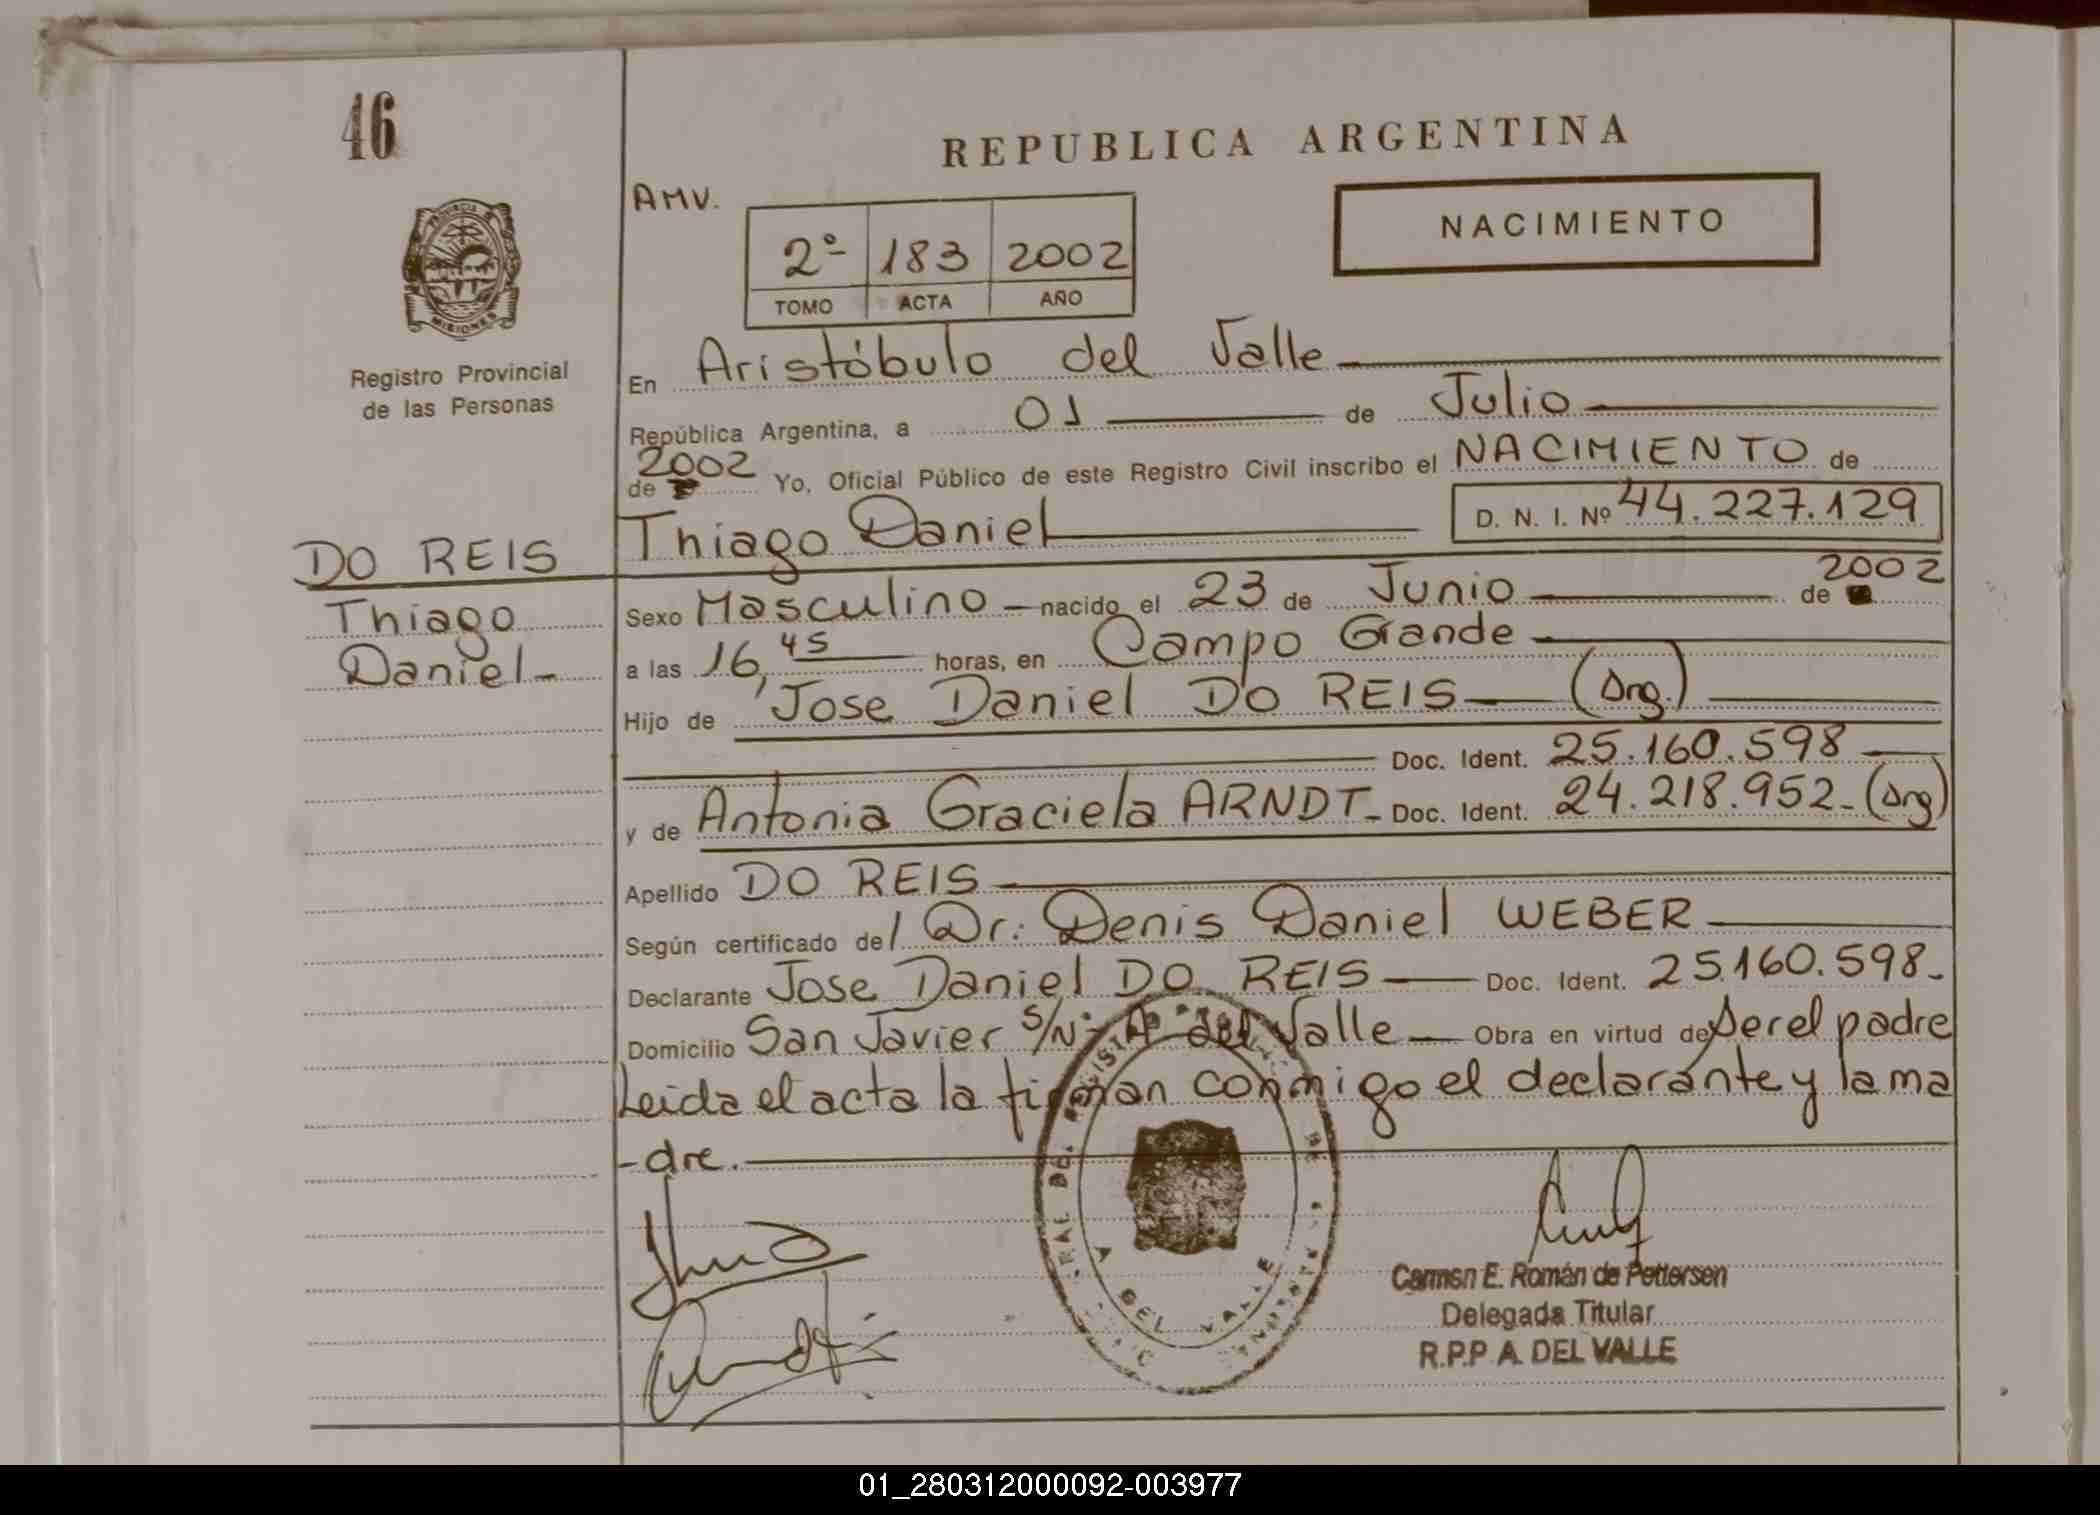 46
REPUBLICA ARGENTINA
AMV.
NACIMIENTO
2º 183 2002
TOMO ACTA AÑO
PROVINCIA DE
MISIONES
Registro Provincial
de las Personas
En Aristóbulo del Valle
República Argentina, a 01 de Julio
de 2002 Yo, Oficial Público de este Registro Civil inscribo el NACIMIENTO de
Thiago Daniel D. N. I. Nº 44.227.129
DO REIS
Thiago
Daniel-
Sexo Masculino - nacido el 23 de Junio de 2002
a las 16,45 horas, en Campo Grande
Hijo de Jose Daniel DO REIS (Arg.)
Doc. Ident. 25.160.598
y de Antonia Graciela ARNDT- Doc. Ident. 24.218.952-(Arg)
Apellido DO REIS
Según certificado del Dr: Denis Daniel WEBER
Declarante Jose Daniel DO REIS Doc. Ident. 25.160.598-
Domicilio San Javier S/Nº A del Valle Obra en virtud de ser el padre
Leida el acta la firman conmigo el declarante y la ma
-dre.
A DEL VALLE
Carmen E. Román de Pettersen
Delegada Titular
R.P.P A. DEL VALLE
01_280312000092-003977